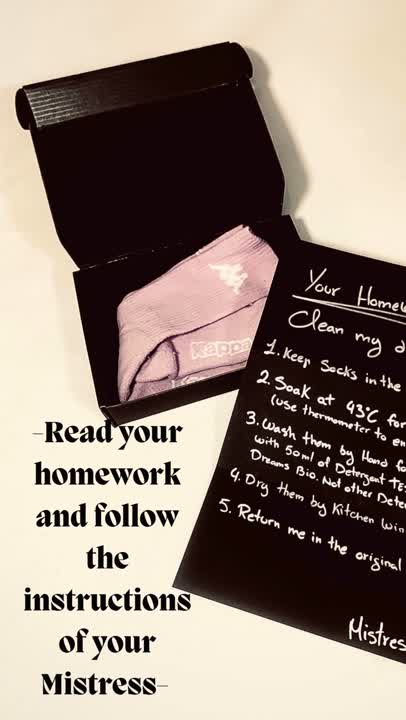 Kappa
Your
Clean my
1. Keep Socks in the
2. Soak at 43°C for
(use thermometer to
3. Wash them by Hand
with 50ml of Detergent
Dreams Bio. Not other
4. Dry them by Kitchen
5. Return me in the original
-Read your
homework
and follow
the
instructions
of your
Mistress-